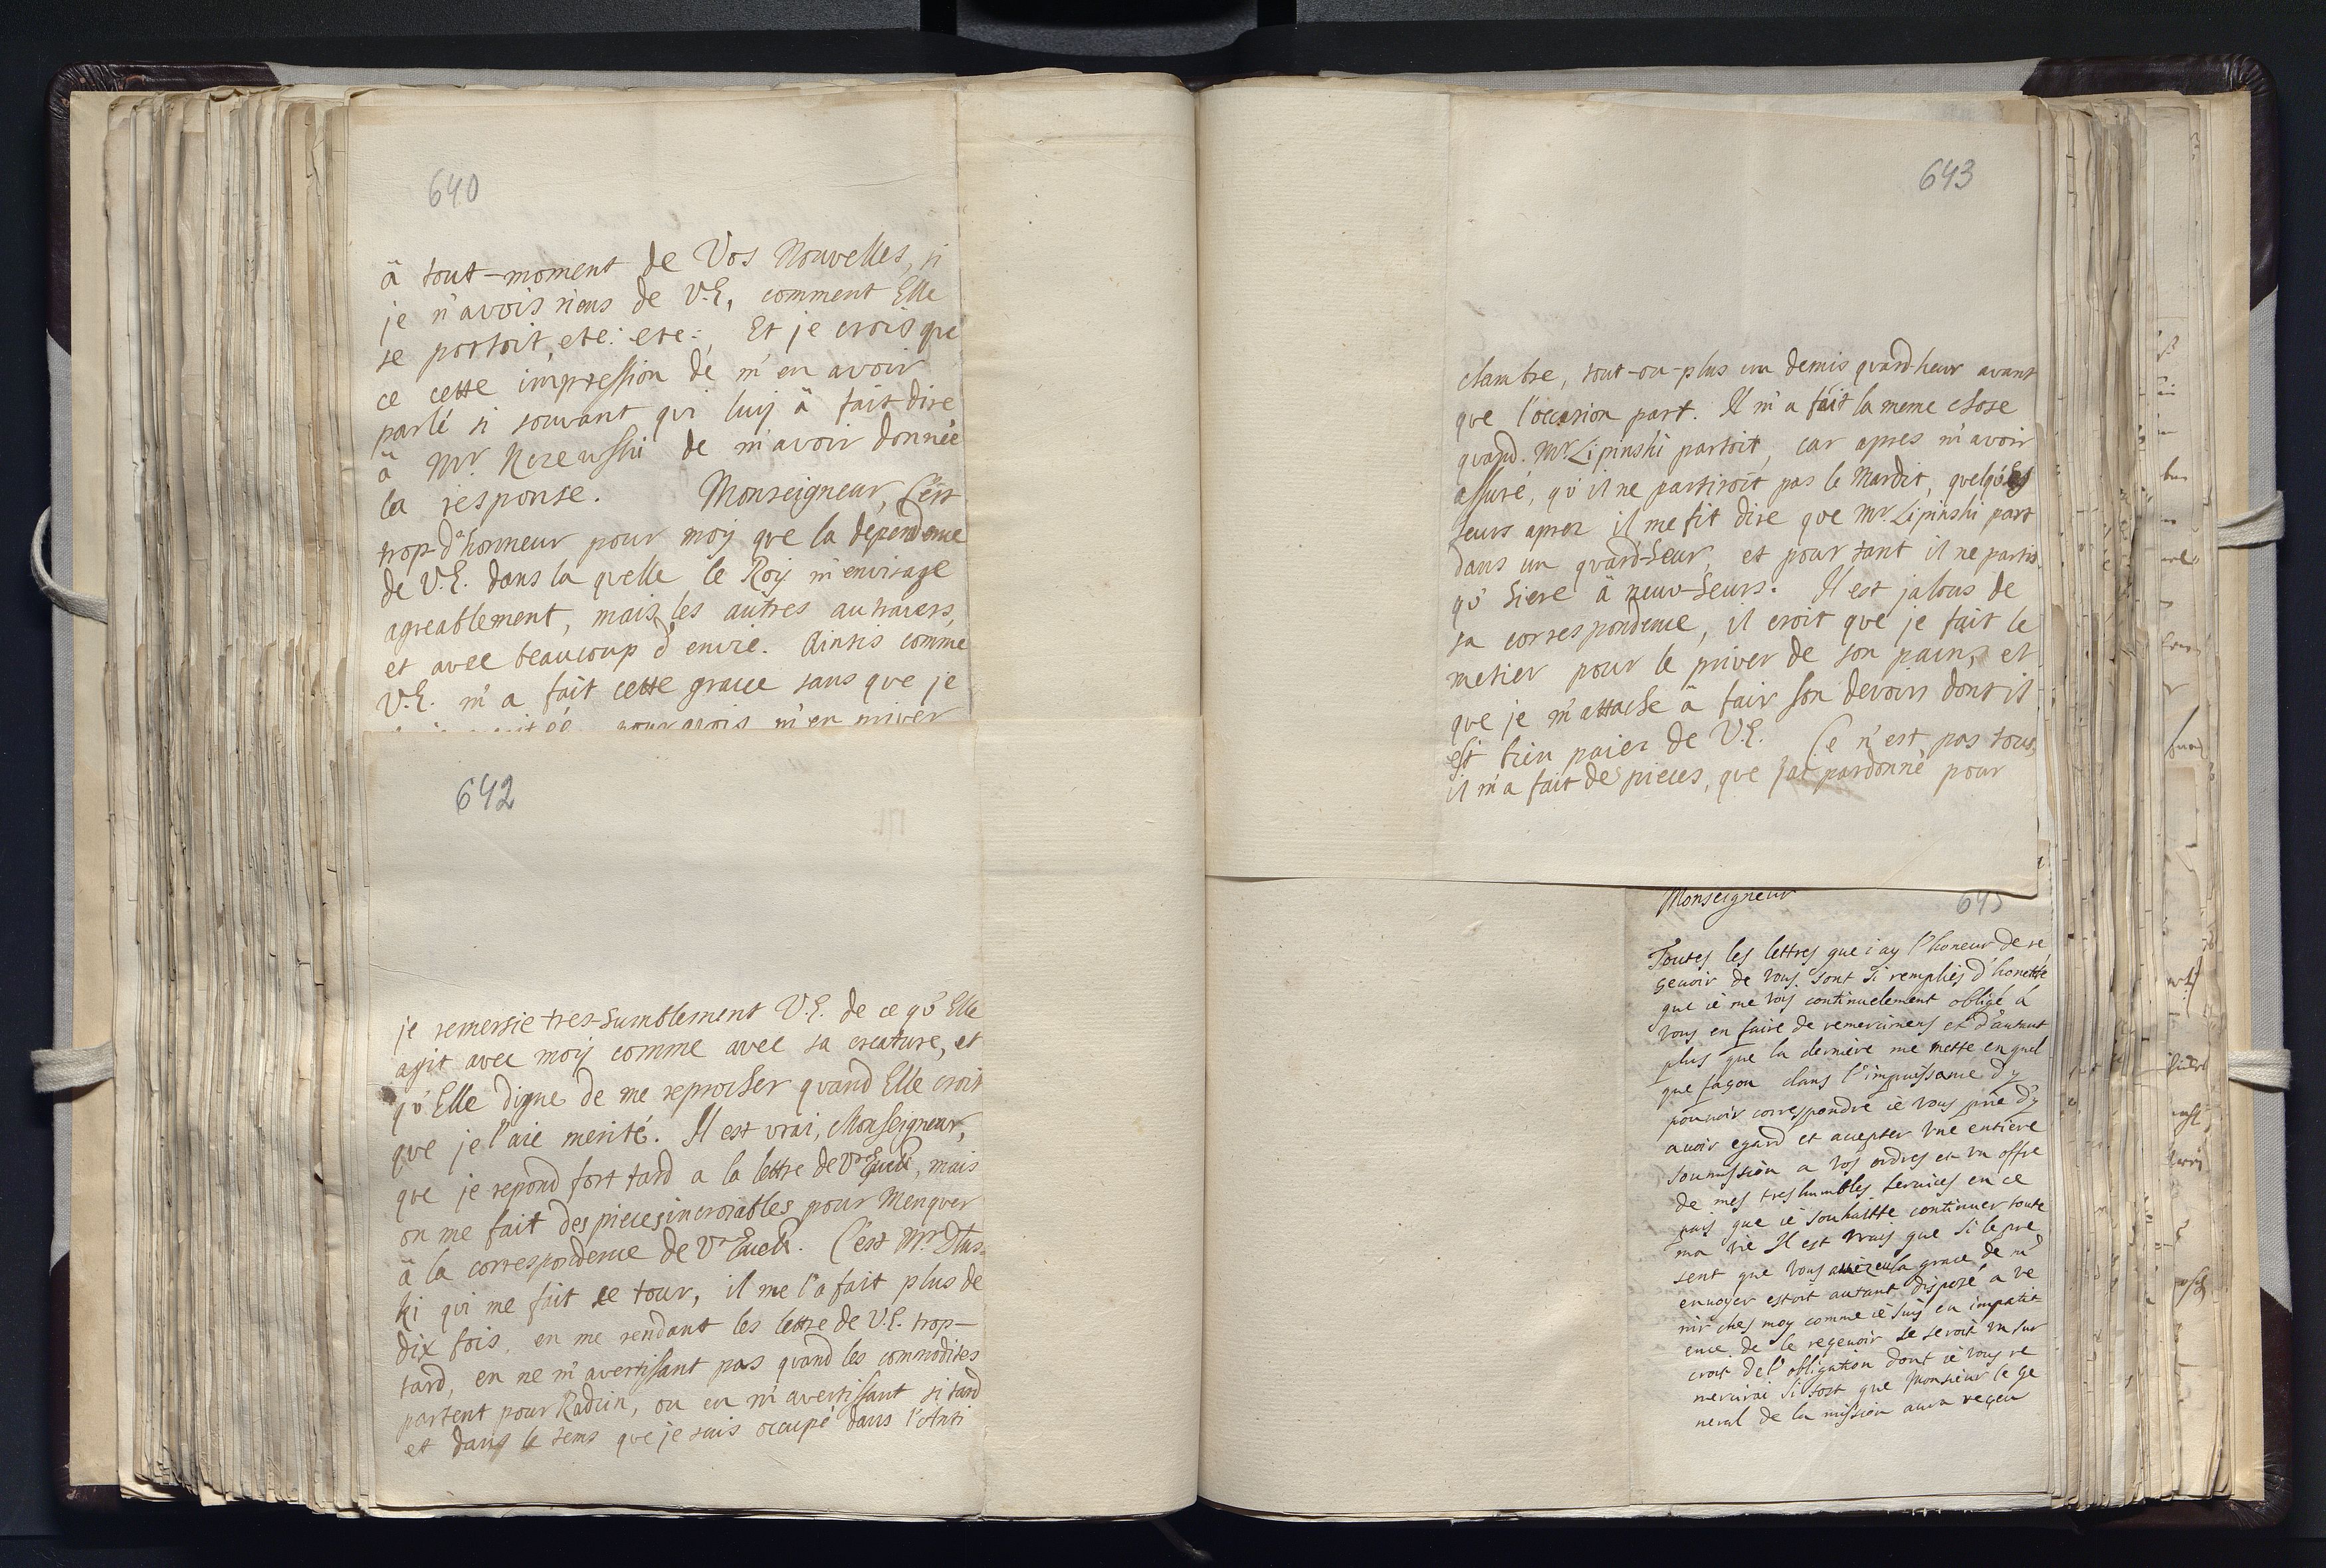 640
à tout-moment de Vos Nouvelles, si
je n'avois riens de V.E, comment Elle
se portoit, etc: etc:, Et je crois que
ce cette impression de m'en avoir
parlé si souvant qui luij à fait dire
à Mr. de m'avoir donnée
la response. Monseigneur, C'est
trop-d'honneur pour moij que la dependence
de V.E. dans la quelle le Roy m'envisage
agreablement, mais les autres au travers,
et avec beaucoup d'envie. Ainsis comme
V.E. m'a fait cette grace sans que je
m'en priver
642
je remersie tres-humblement V.E. de ce qu'Elle
agit avec moij comme avec sa creature, et
qu'Elle digne de me reprocher quand Elle croit
que je l'aie merité. Il est vrai, Monseigneur,
que je repond fort tard a la lettre de Vre Excell, mais
on me fait des pieces incroiables pour Menquer
à la correspondence de Vre Excell. C'est Mr. Dlus-
ki qui me fait ce tour, il me l'a fait plus de
dix fois, en me rendant les lettre de V.E. trop-
tard, en ne m'avertissant pas quand les commodites
partent pour Radzin, ou en m'avertissant si tard
et dans le tems que je suis occupé dans l'Anti
643
chambre, tout-ou-plus un demis quard-heur avant
que l'occasion part. Il m'a fait la meme chose
quand. Mr. Lipinski partoit, car apres m'avoir
assuré, qu'il ne partiroit pas le Mardit, quelqu'es
heurs aprez il me fit dire que Mr. Lipinski part
dans un quard-heur, et pour tant il ne partis
qu'hiere à neuv-heurs. Il est jalous de
sa correspondence, il croit que je fait le
metier pour le priver de son pain, et
que je m'attache à fair son devoirs dont il
est bien paiez de V.E. Ce n'est pas tous,
il m'a fait de pieces, que j'ai pardonné pour
Monseigneur 645
Toutes les lettres que i'ay l'honeur de re
çeuoir de vous sont si remplies d'honetté
que ie me vois continuelement obligé à
vous en faire de remercimens et d'autant
plus que la derniere me mette en quel
que façon dans l'impuissance d'y
pouvoir correspondre ie vous prie d'y
auoir egard et accepter une entiere
soumission a vos ordres et un offre
de mes tres humbles seruices en ce
mais que ie souhaitte continuer toute
ma vie Il est vrais que si le pre
sent que vous auiez eu la grace de m'
enuoyer estoit autant disposé a ve
nir ches moy comme ie suis en impati-
ence de le reçeuoir ce seroit un sur
croit de l'obligation dont ie vous re
mercirai si tost que Monsieur le Ge
neral de la mission aura reçeu